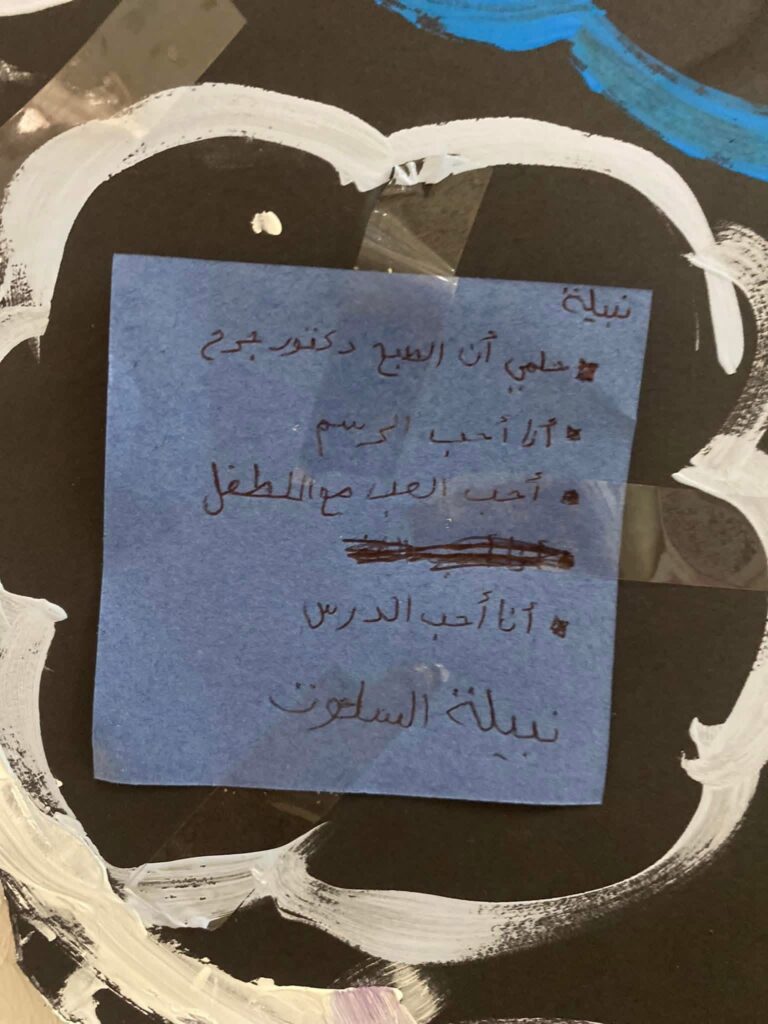 نبيلة
حلمي أن اصبح دكتور جرح
أنا أحب الرسم
أحب العب مع اللطفل
أنا أحب الدرس
نبيلة